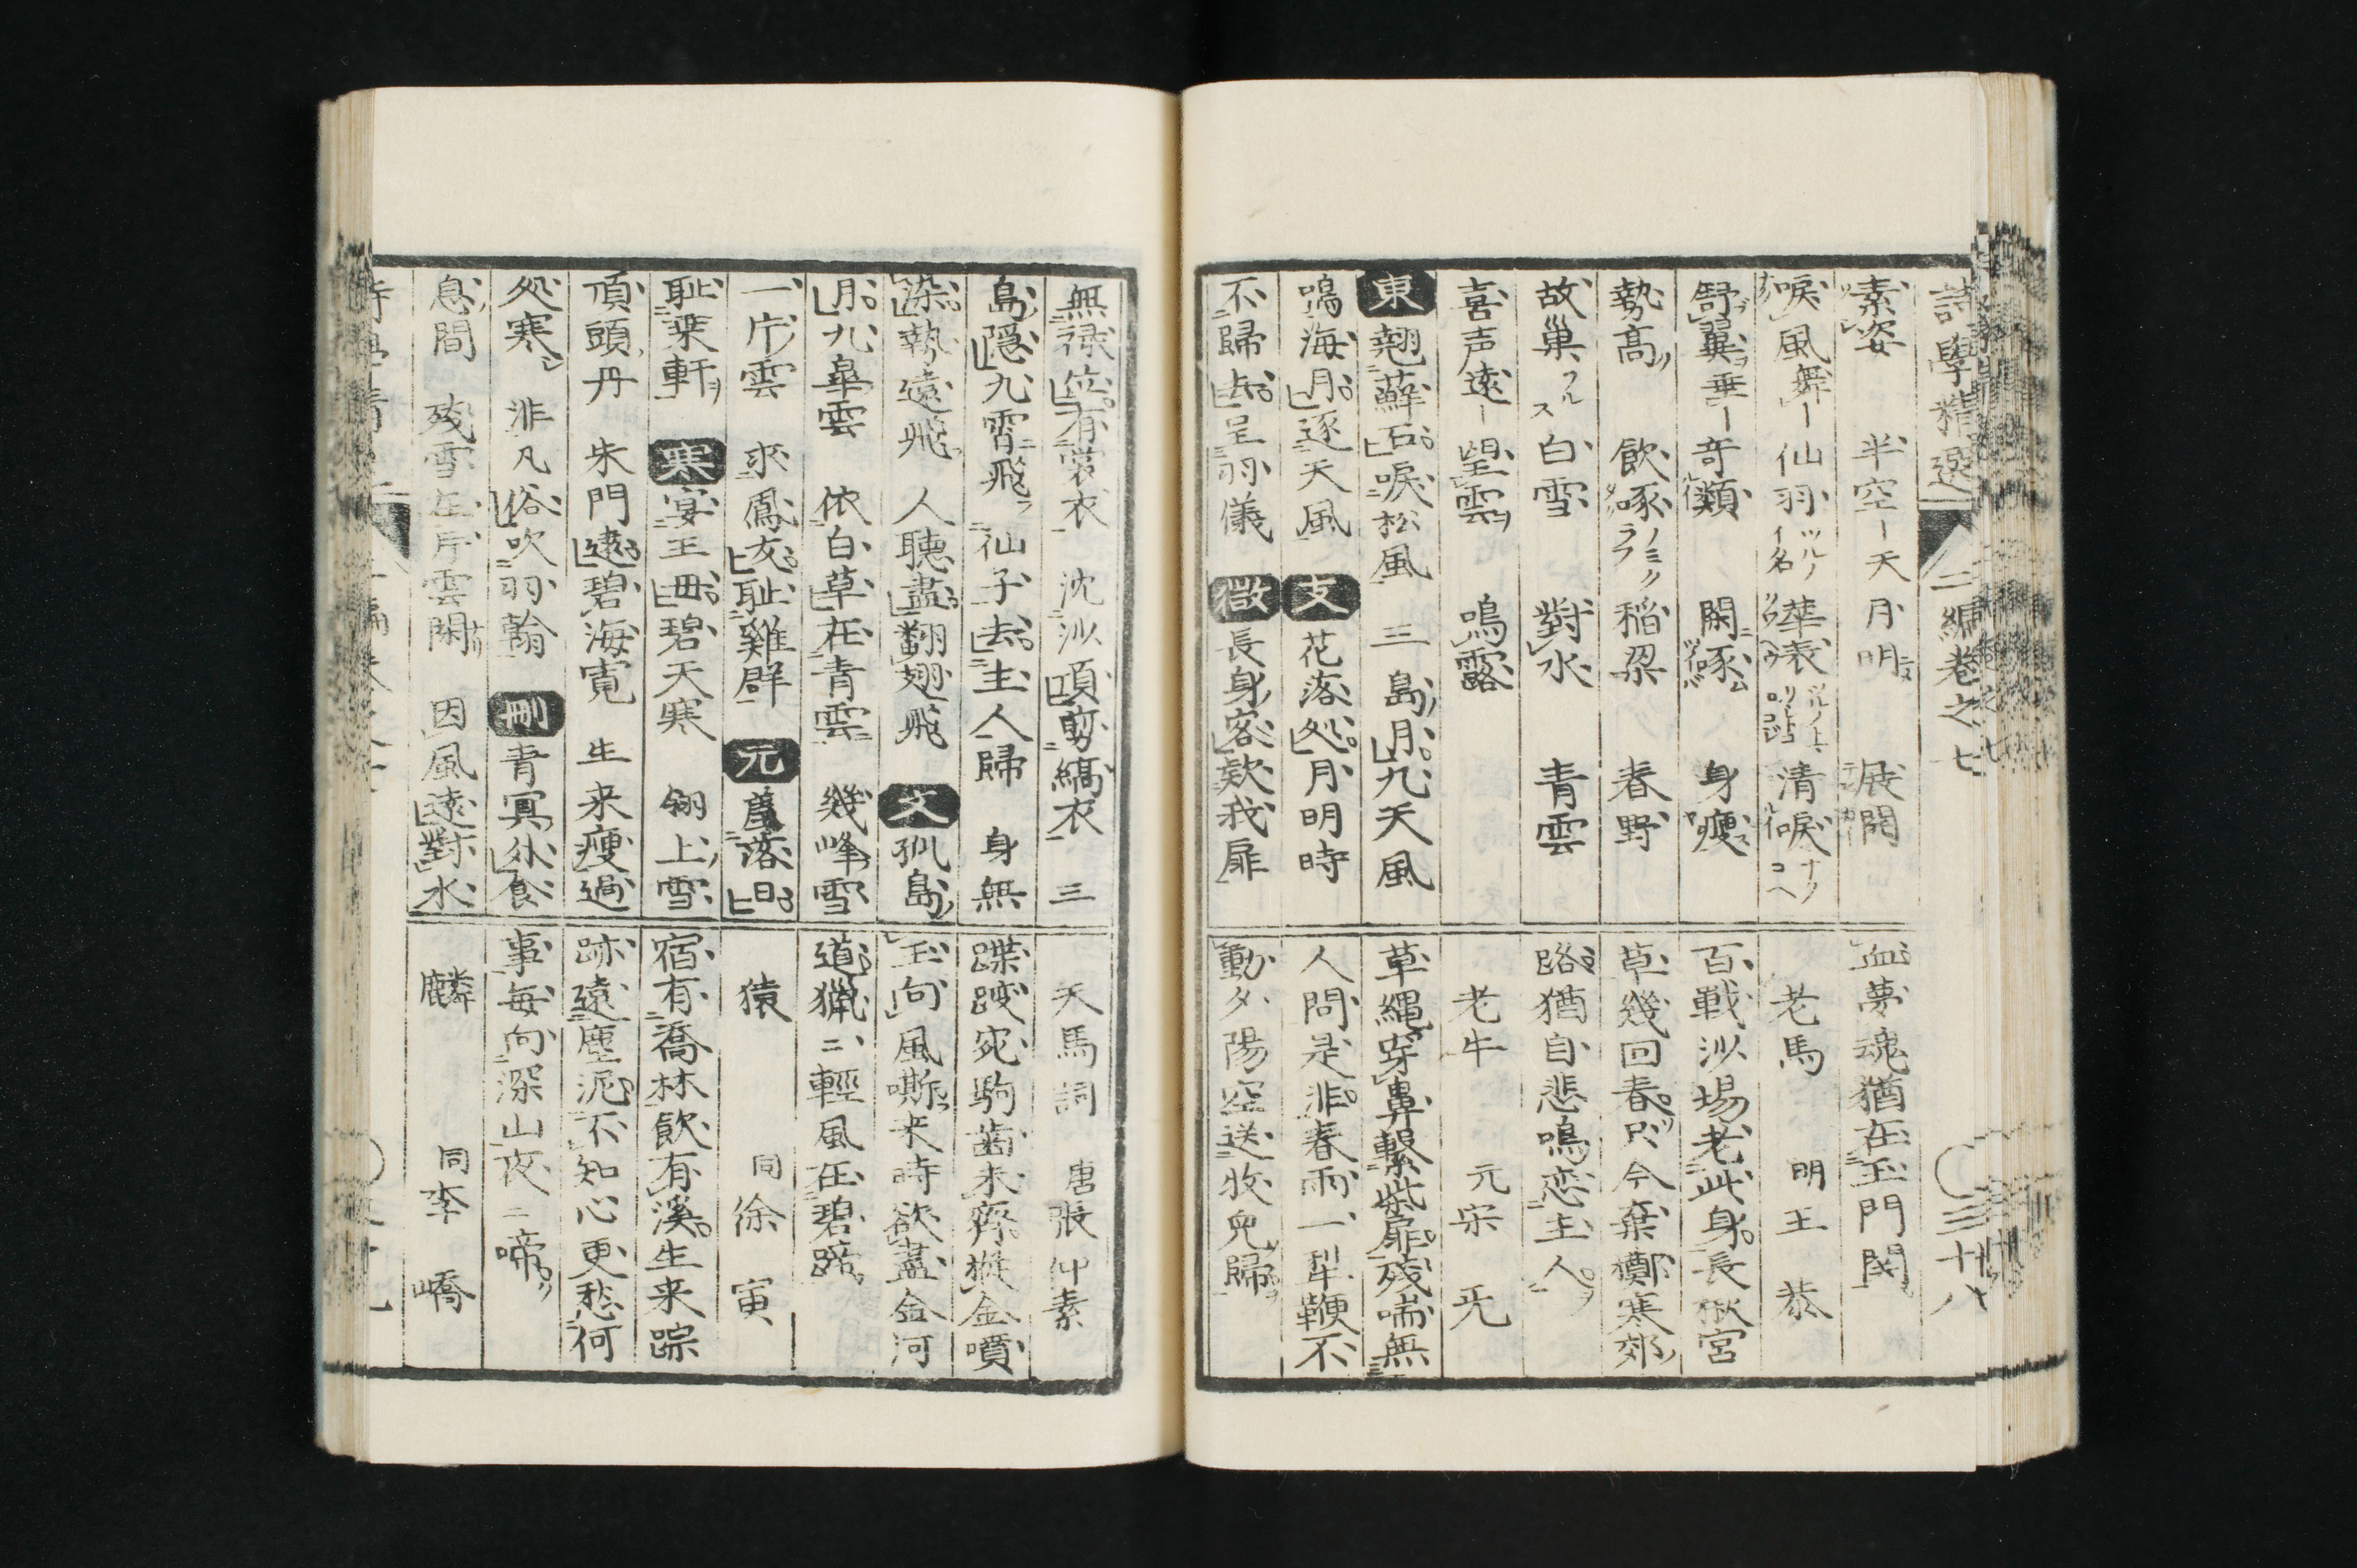 詩學精選 二編卷之七 三十八
素姿 半空 天月明 展開
唳風舞 仙羽 ツルノイ名 華表 清唳 ナクコヘ
舒翼垂 奇類 閑啄 身瘦
勢高 飲啄 ノミクラフ 稲粱 春野
故巢 フルス 白雪 對水 青雲
喜声遠 望雲 鳴露
東 翹蘚石唳松風 三島月九天風
鳴海月逐天風 支 花落処月明時
不歸去呈羽儀 微 長身客欸我扉
血夢魂猶在玉門関
老馬 明王恭
百戦沙場老此身長楸宮
草幾回春只今棄擲寒郊
路猶自悲鳴恋主人
老牛 元宋无
草縄穿鼻繋柴扉残喘無
人問是非春雨一犁鞭不
動夕陽空送牧兒歸
無禄位有裳衣 沈沙頂剪縞衣 三
島隠九霄飛 仙子去主人歸 身無
染執遠飛 人聴盡翻翅飛 文 孤島
月九皐雲 依白草在青雲 幾峰雪
一片雲 求鳳友耻雞群 元 舊落日
耻乘軒 寒 宴王毋碧天寒 翎上雪
頂頭丹 朱門遠碧海寛 生来瘦過
処寒 非凡俗吹羽翰 刪 青冥外食
息間 残雪在片雲閑 因風遠對水
天馬詞 唐張仲素
蹀躞宛駒齒未齊摐金噴
玉向風嘶来時欲盡金河
道猟二輕風在碧蹄
猿 同徐寅
宿有喬林飲有溪生来踪
跡遠塵泥不知心更愁何
事毎向深山夜二啼
麟 同李嶠